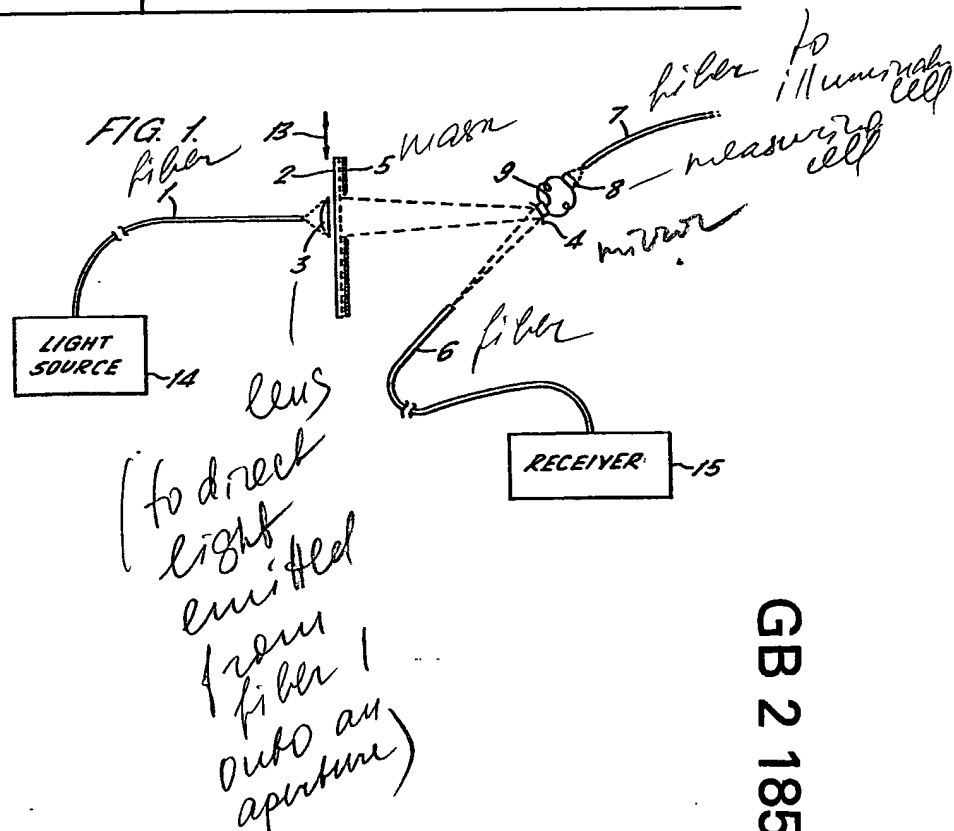 FIG. 1.
fiber
1
B
2
5
mask
fiber to
illuminate
cell
7
measuring
cell
9
8
4
mirror
3
6
fiber
LIGHT
SOURCE
14
RECEIVER
15
lens
(to direct
light
emitted
from
fiber 1
onto an
aperture)
GB 2 185